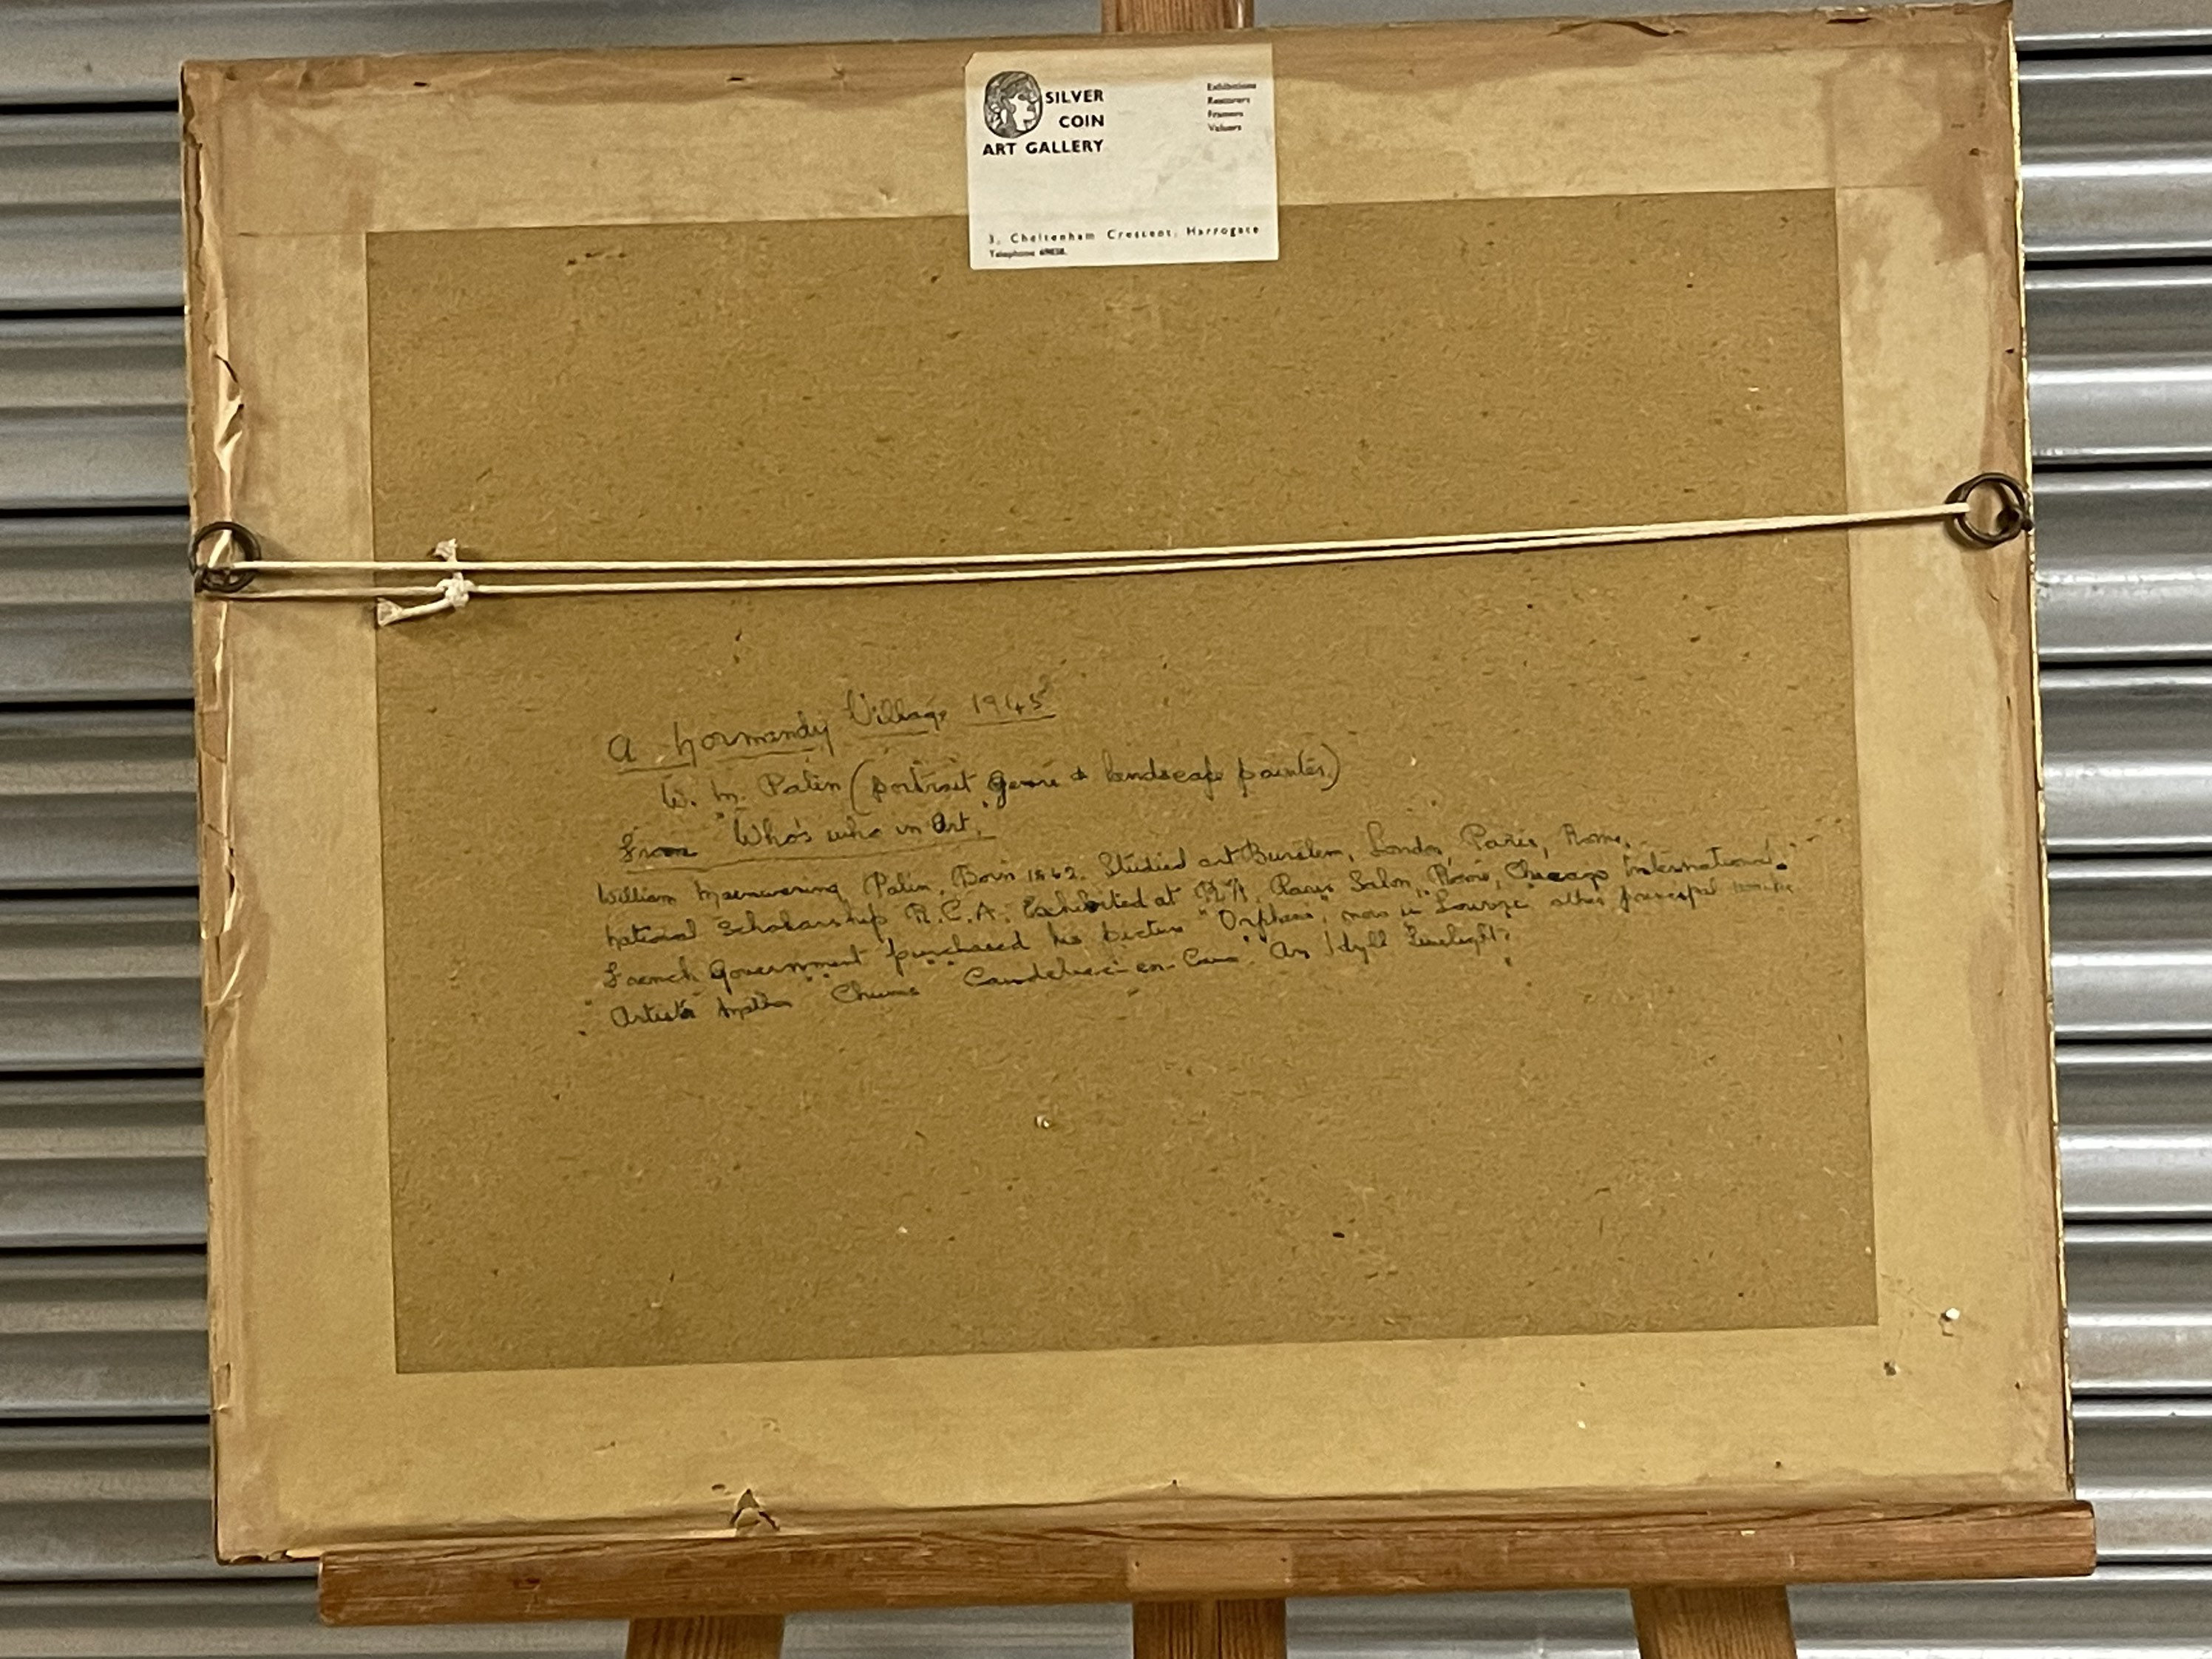 SILVER
COIN
ART GALLERY
Exhibitions
Restorers
Framers
Valuers
3, Cheltenham Crescent, Harrogate
Telephone
A Normandy Village 1945
W. M. Palin (portrait genre & landscape painter)
From "Who's who in Art"
William Palin. Born 1862. Studied art Burslem, London, Paris, Rome,
National Scholarship R.C.A. Exhibited at R.A. Paris Salon, Rome, Chicago International.
French Government purchased his picture "Orpheus", now in Louvre other principal works
"Artist's Mother" "Chums" "An Idyll